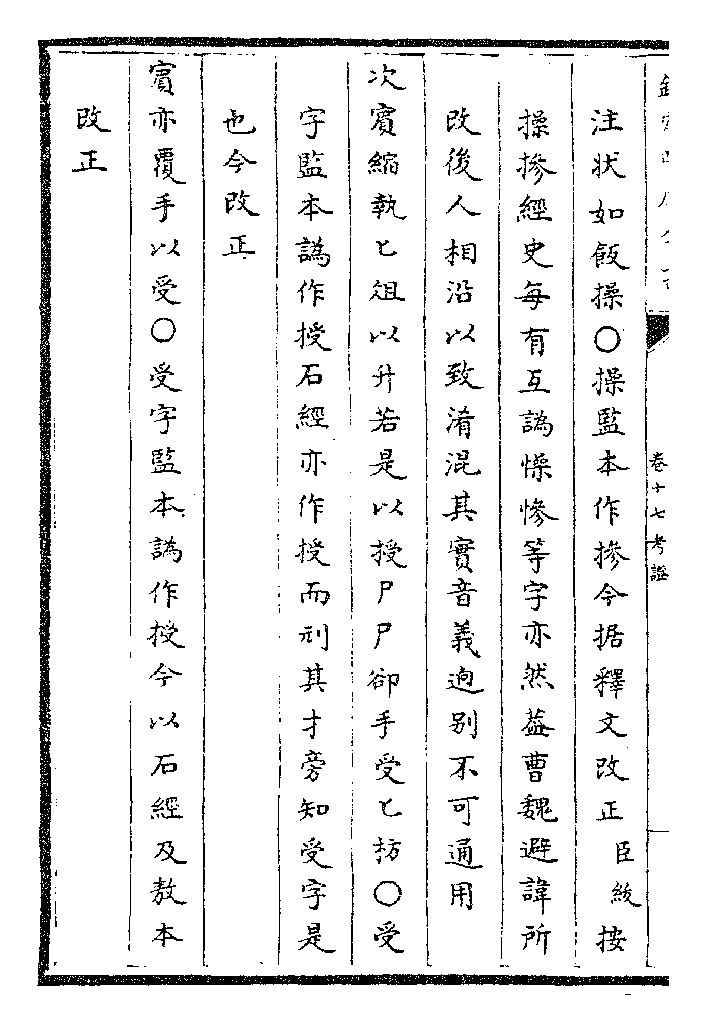 卷十七考證
注状如飯操○操監本作摻今据釋文改正臣紱按
操摻經史每有互譌懆慘等字亦然葢曹魏避諱所
改後人相沿以致淆混其實音義迥别不可通用
次賓縮執匕俎以升若是以授尸尸卻手受匕枋○受
字監本譌作授石經亦作授而刓其才旁知受字是
也今改正
賓亦覆手以受○受字監本譌作授今以石經及敖本
改正